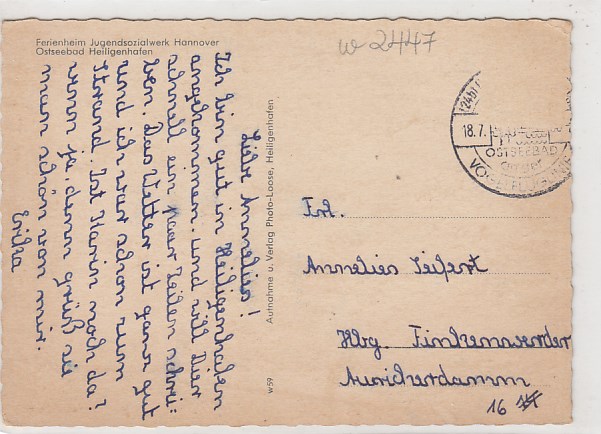 Ferienheim Jugendsozialwerk Hannover
Ostseebad Heiligenhafen
w 2447
Liebe Annelies!
Ich bin gut in Heiligenhafen
angekommen. und will Dier
schnell ein paar Zeilen schrei:
ben. Das Wetter ist ganz gut
und ich war schon zum
Strand. Ist Karin noch da?
wenn ja dann grüß sie
man schön von mir.
Erika
Aufnahme u. Verlag Photo-Loose, Heiligenhafen
W59
18.7.
OSTSEEBAD
Frl.
Annelies Seifert
Hbg. Finkenwerder
Auricherdamm
16